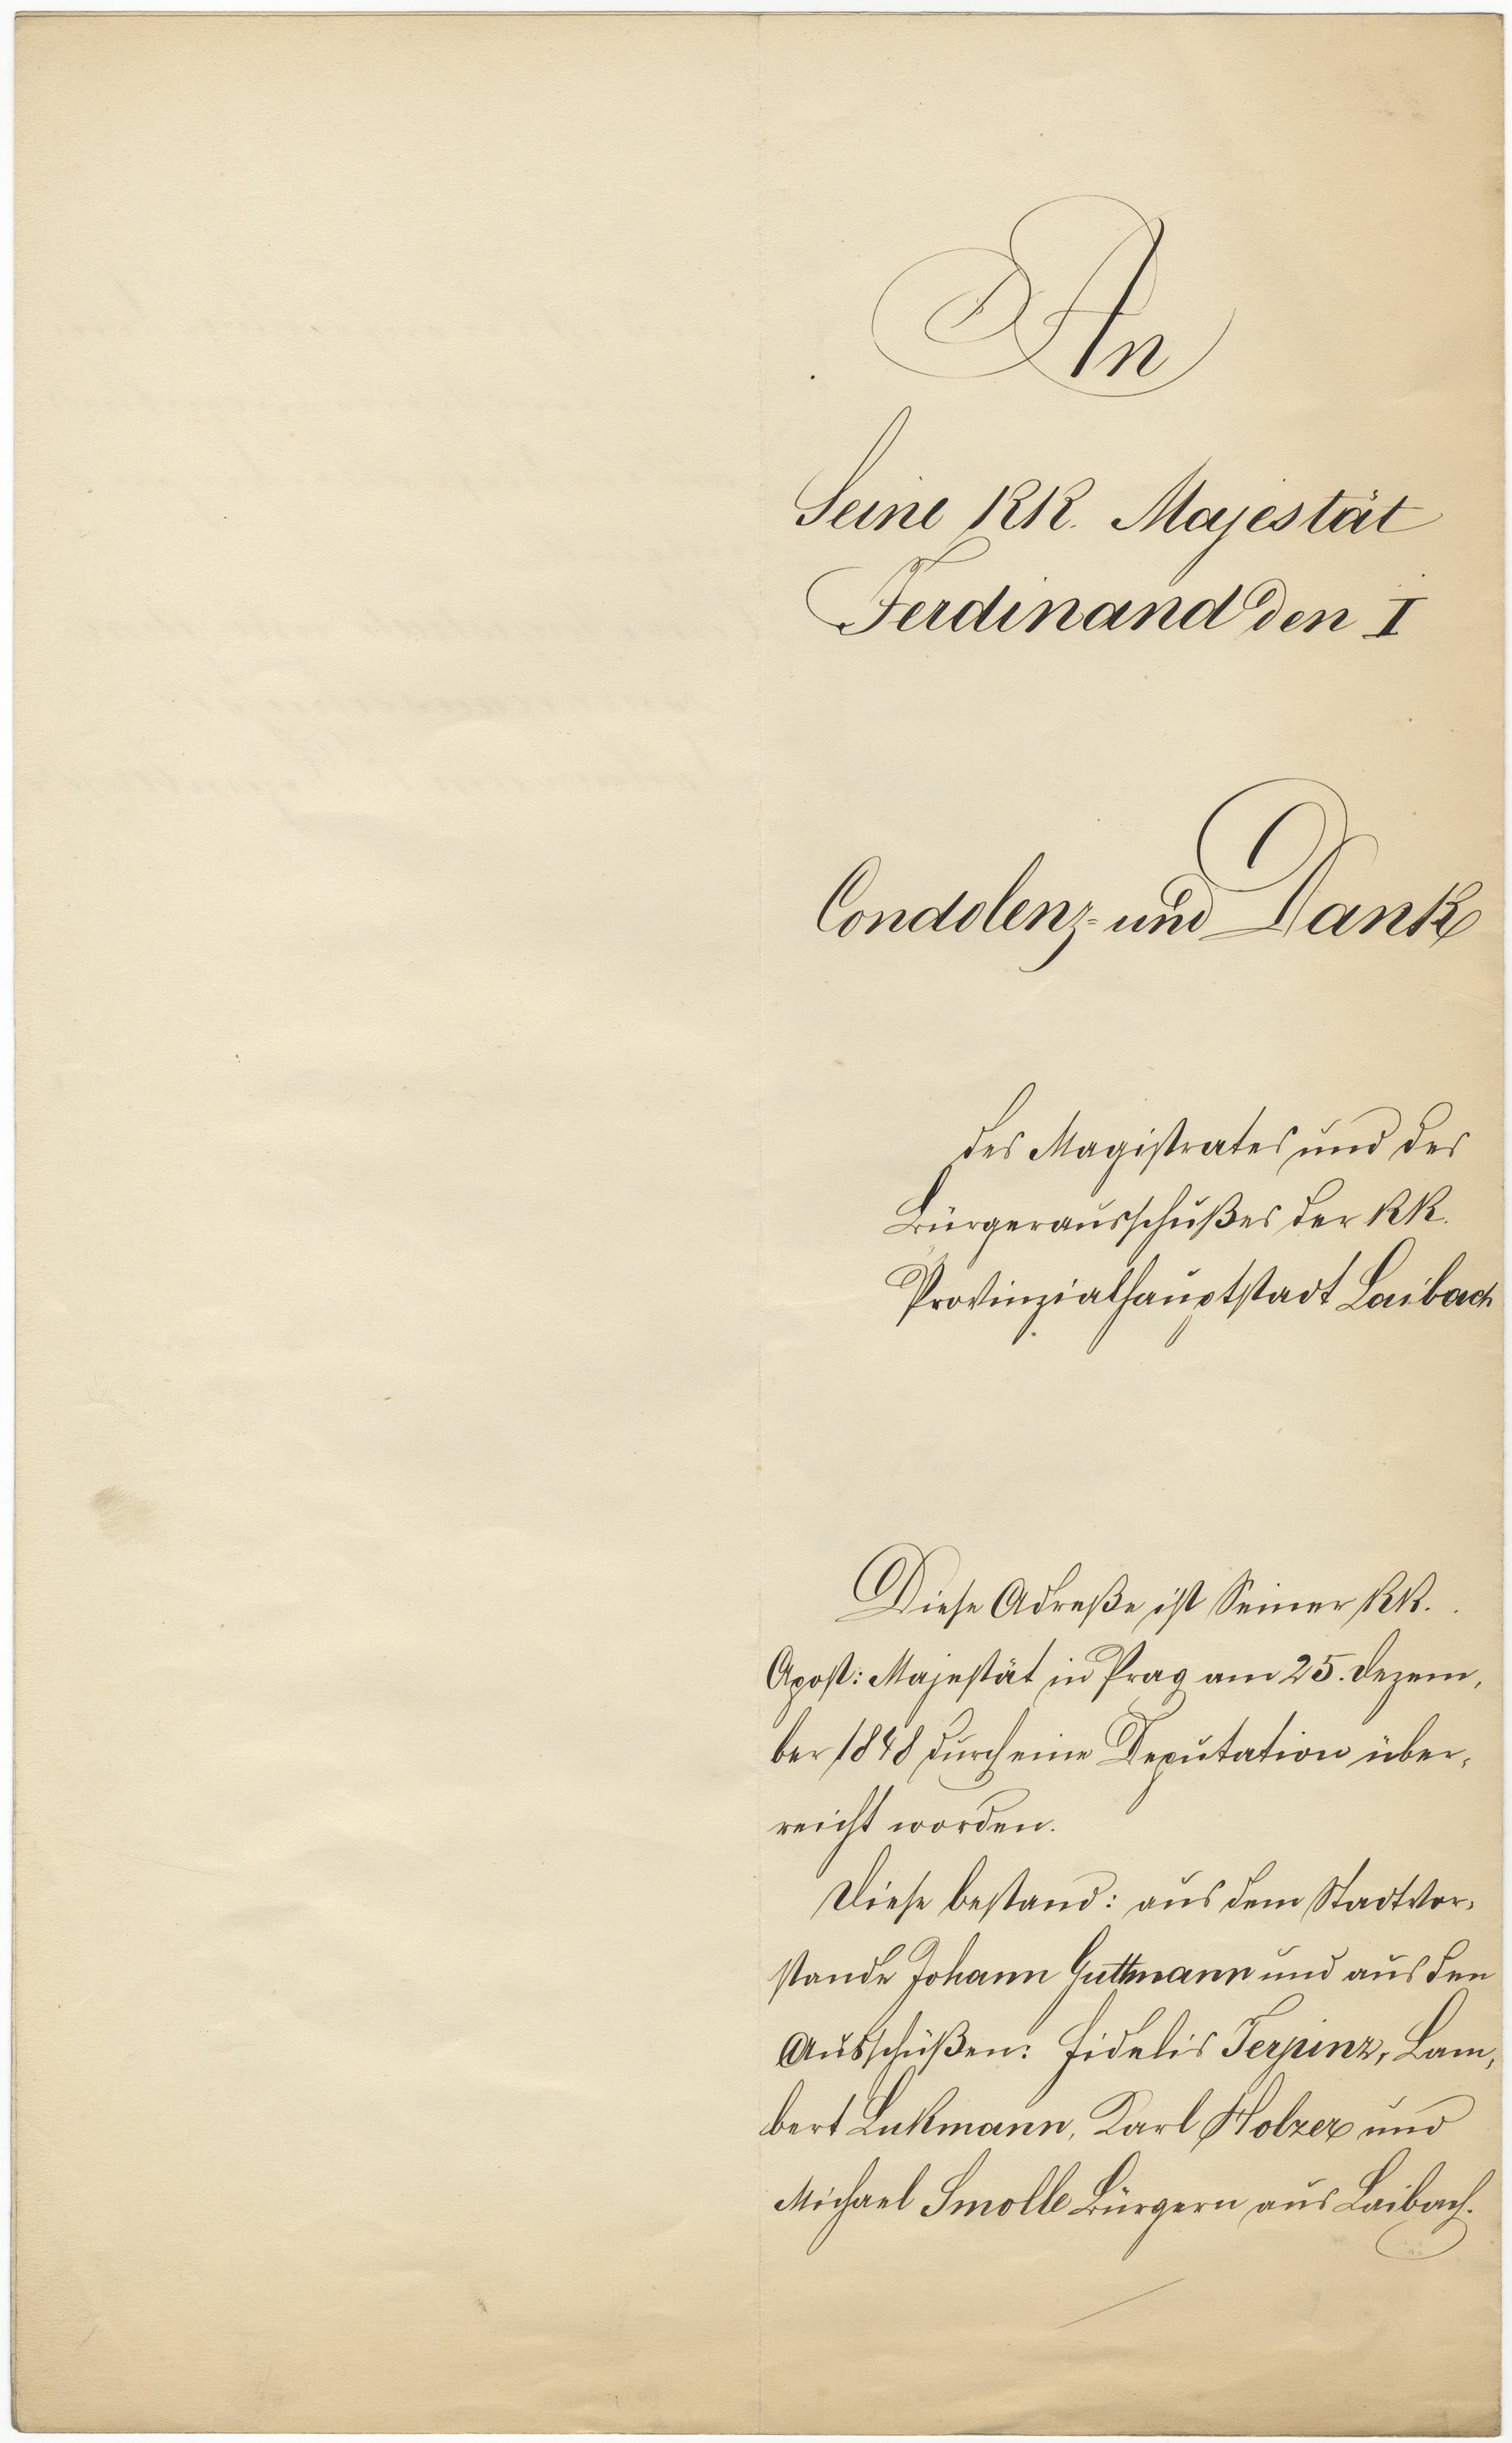 An
Seine KK. Majestät
Ferdinand den I
Condolenz- und Dank
des Magistrates und des
Bürgerausschußes der KK.
Provinzialhauptstadt Laibach
Diese Adreße ist Seiner KK.
Apost: Majestät in Prag am 25. Dezem,
ber 1848 durch eine Deputation über,
reicht worden.
Diese bestand: aus dem Stadtvor,
stande Johann Guttmann und aus den
Ausschüßen: Fidelis Terpinz, Lam,
bert Lukmann, Karl Holzer und
Michael Smolle Bürgern aus Laibach.